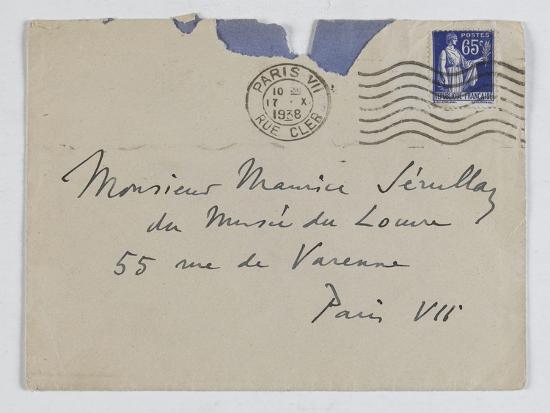 POSTES
65c
PARIS VII
10
17 · X
1938
RUE CLER
Monsieur Maurice Sérullaz
du Musée du Louvre
55 rue de Varenne
Paris VIIe